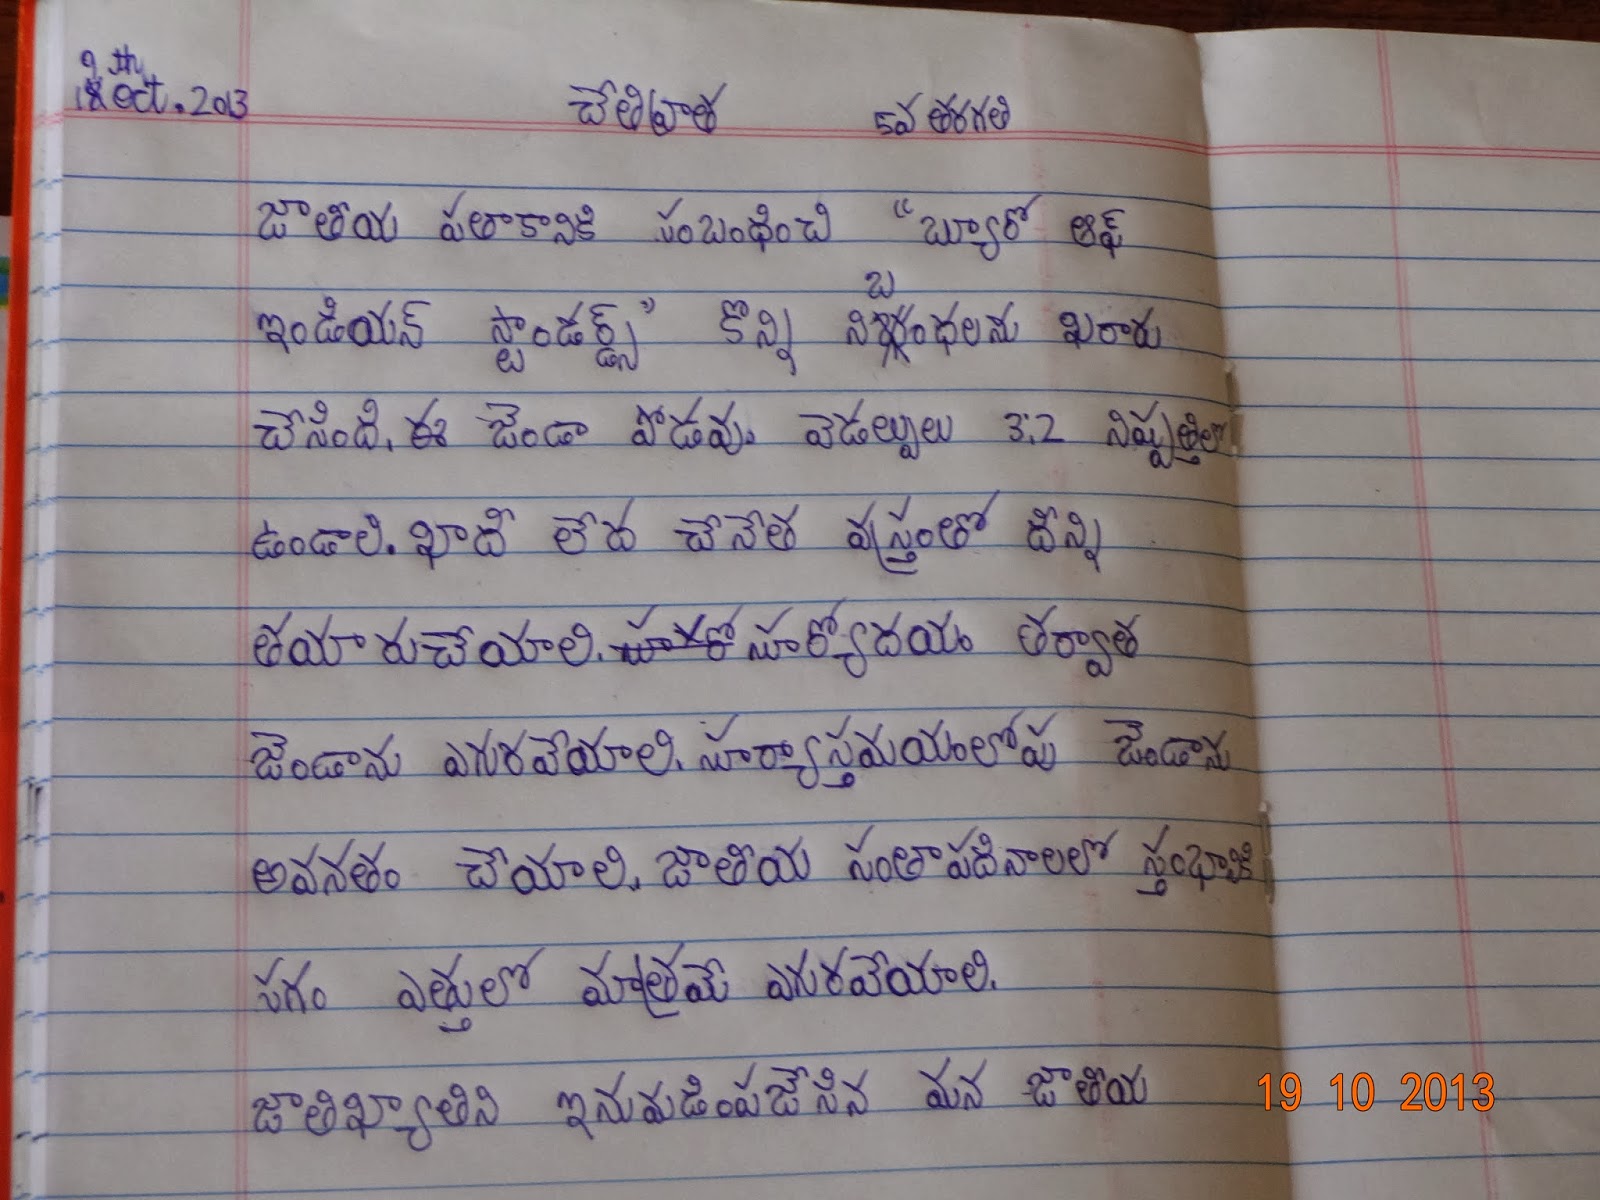 19th Oct. 2013 చేతివ్రాత 5వ తరగతి
జాతీయ పతాకానికి సంబంధించి "బ్యూరో ఆఫ్
ఇండియన్ స్టాండర్డ్స్" కొన్ని నిబంధలను ఖరారు
చేసింది. ఈ జెండా పొడవు, వెడల్పులు 3:2 నిష్పత్తిలో
ఉండాలి. ఖాదీ లేదా చేనేత వస్త్రంతో దీన్ని
తయారుచేయాలి. సూర్యోదయం తర్వాత
జెండాను ఎగురవేయాలి. సూర్యాస్తమయంలోపు జెండాను
అవనతం చేయాలి. జాతీయ సంతాపదినాలలో స్తంభానికి
సగం ఎత్తులో మాత్రమే ఎగురవేయాలి.
జాతిఖ్యాతిని ఇనుమడింపజేసిన మన జాతీయ
19 10 2013